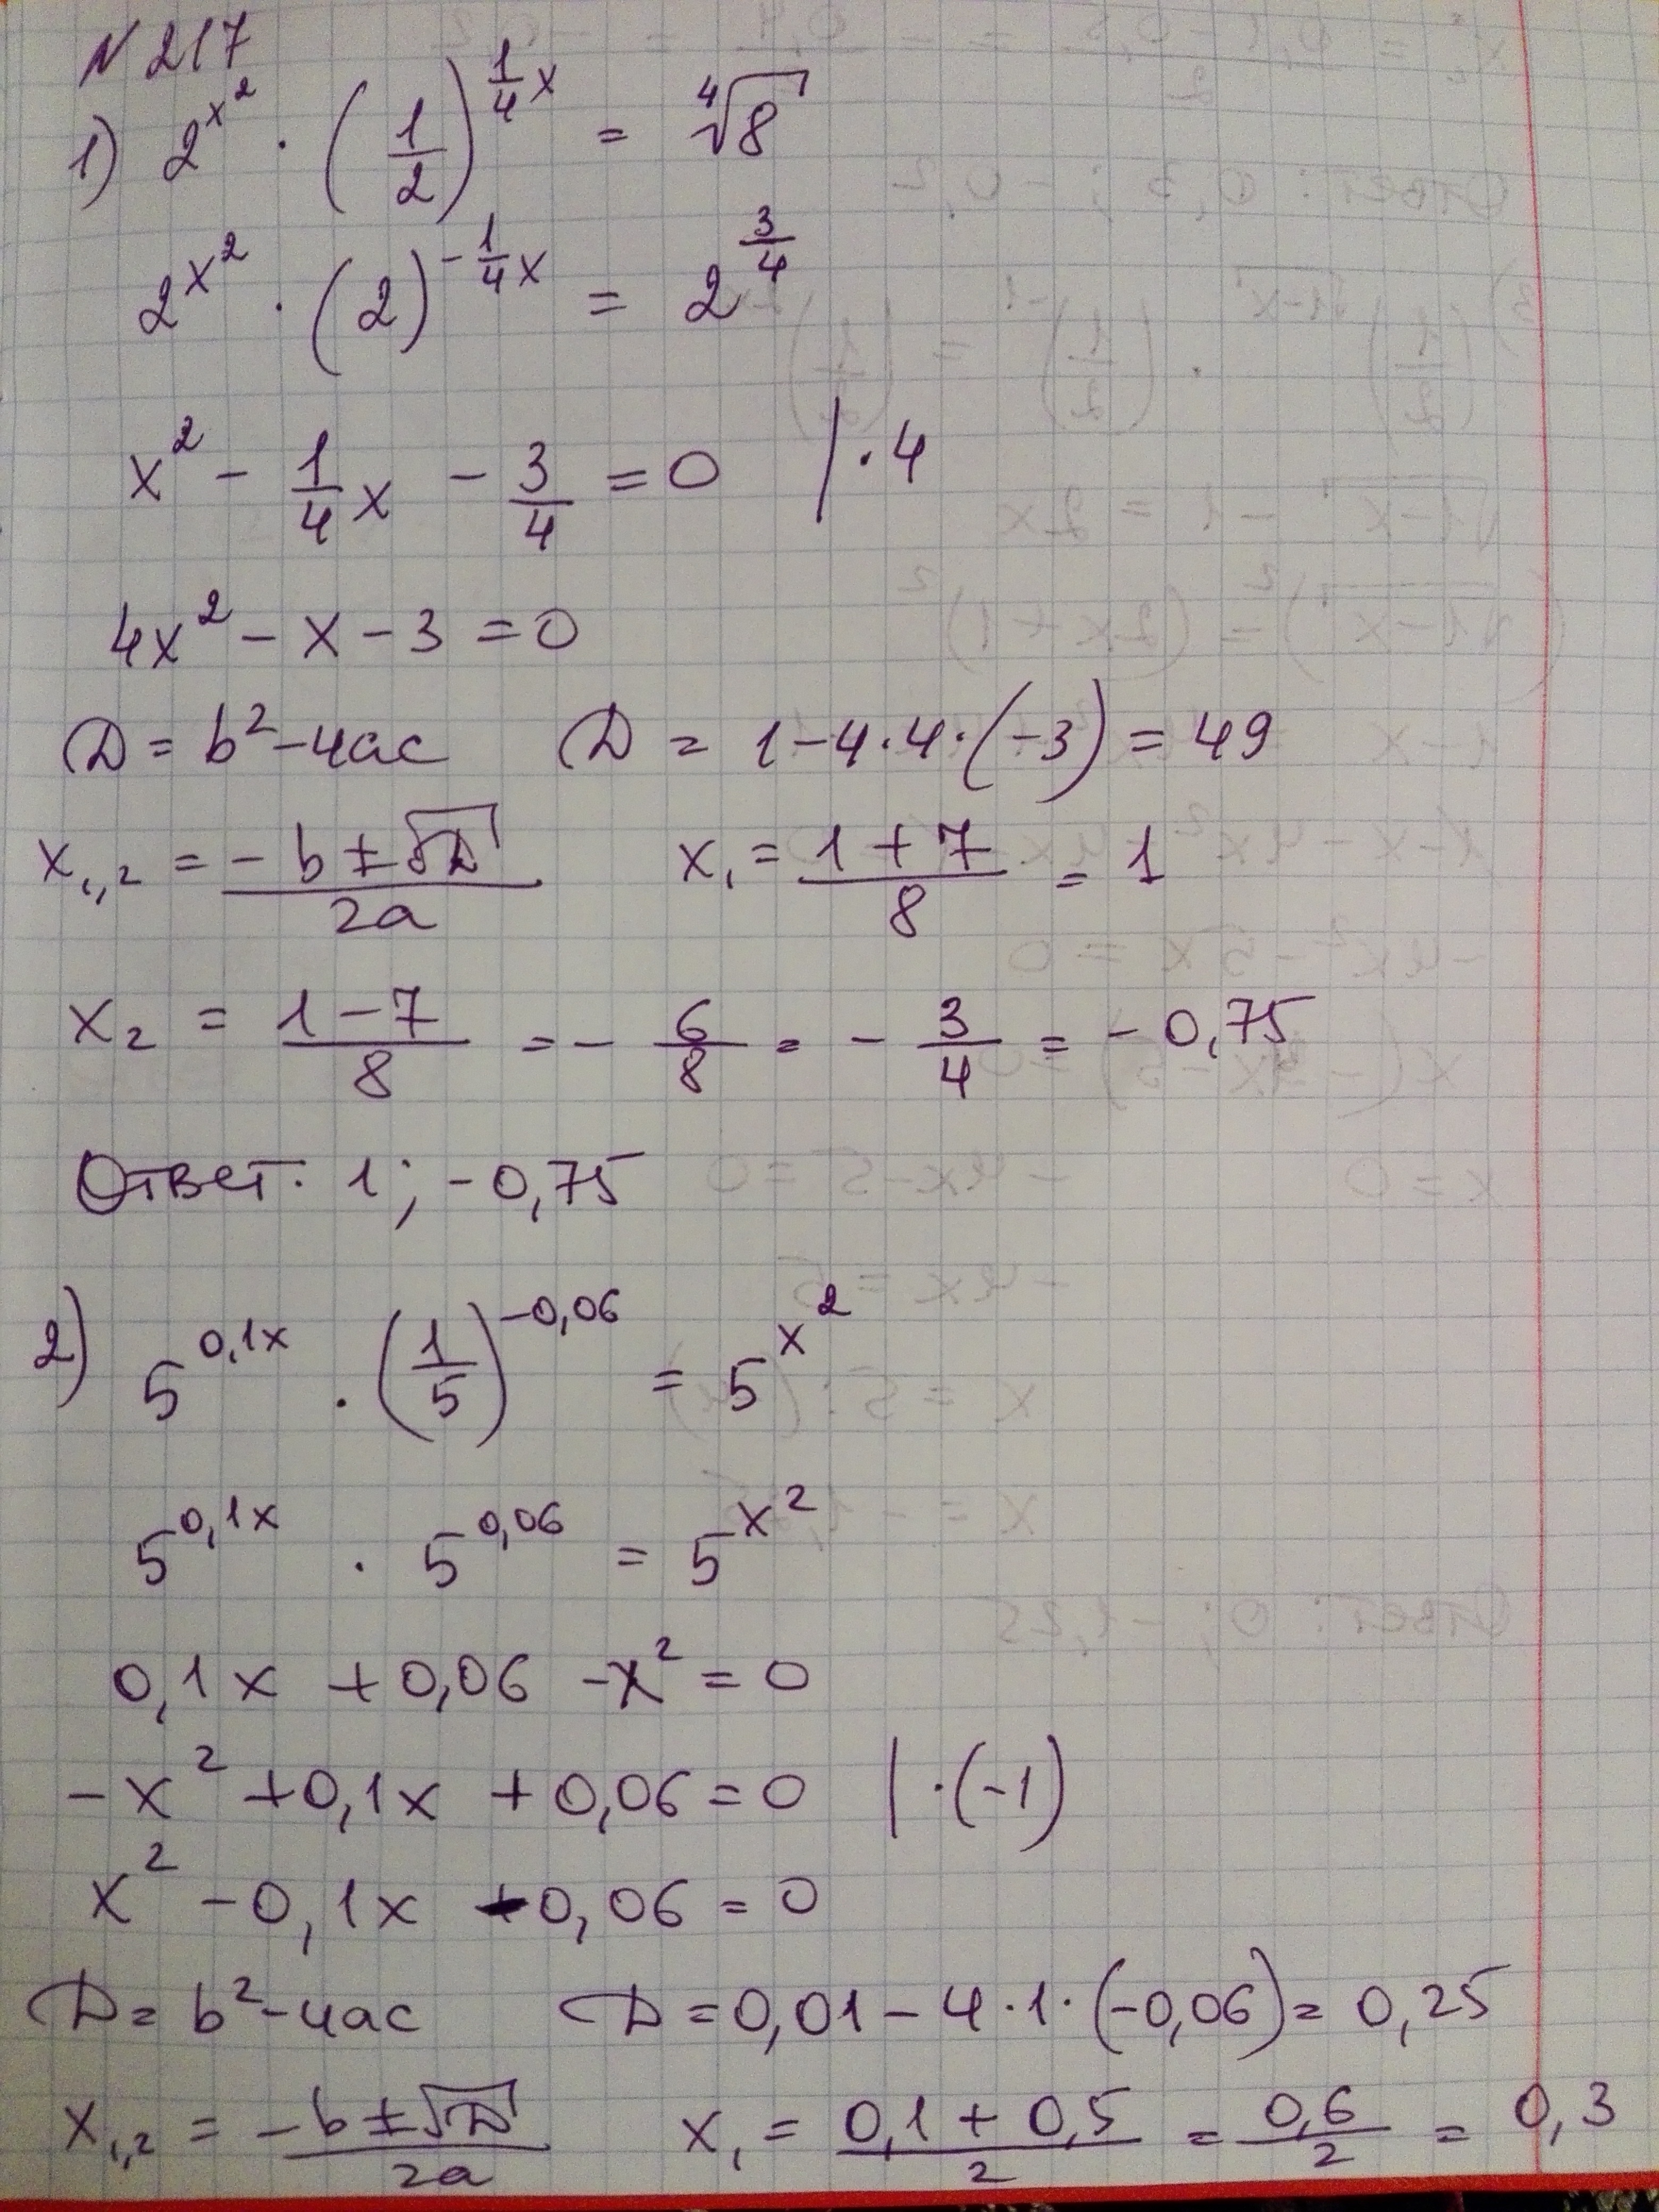 N 217
1) 2^{x^2} · (1/2)^{1/4 x} = ∜8
2^{x^2} · (2)^{-1/4 x} = 2^{3/4}
x^2 - 1/4 x - 3/4 = 0 | · 4
4x^2 - x - 3 = 0
D = b^2 - 4ac D = 1 - 4 · 4 · (-3) = 49
x_{1,2} = (-b ± √D)/2a x_1 = (1 + 7)/8 = 1
x_2 = (1 - 7)/8 = - 6/8 = - 3/4 = - 0,75
Ответ: 1; -0,75
2) 5^{0,1x} · (1/5)^{-0,06} = 5^{x^2}
5^{0,1x} · 5^{0,06} = 5^{x^2}
0,1x + 0,06 - x^2 = 0
-x^2 + 0,1x + 0,06 = 0 | · (-1)
x^2 - 0,1x - 0,06 = 0
D = b^2 - 4ac D = 0,01 - 4 · 1 · (-0,06) = 0,25
x_{1,2} = (-b ± √D)/2a x_1 = (0,1 + 0,5)/2 = 0,6/2 = 0,3